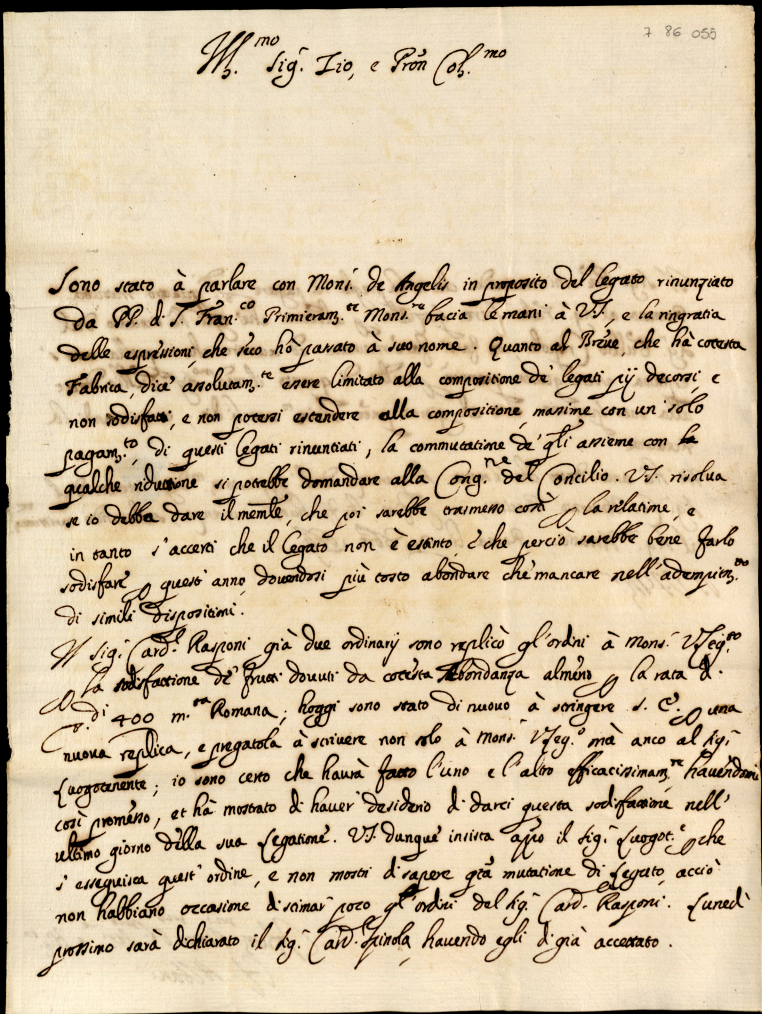 7 86 055
Ill.mo Sig.r Zio, e Pron Col.mo
Sono stato à parlare con Mons.r de Angelis in proposito del legato rinunziato
da PP. di S. Fran.co Primieram.te Mons.re bacia le mani à VS, e la ringratia
delle espressioni, che seco hò passato à suo nome. Quanto al Breve, che hà cotesta
Fabrica, dice assolutam.te essere limitato alla compositione de' legati pij decorsi, e
non sodisfati, e non potersi estendere alla compositione, masime con un' solo
pagam.to, di questi legati rinuntiati, la commutatione de' q.li assieme con la
qualche riduttione si potrebbe domandare alla Cong.ne del Concilio. VS. risolva
se io debba dare il mem.le, che poi sarebbe trasmesso costì p la relatione, e
in tanto s'accerti che il legato non è estinto, e che perciò sarebbe bene farlo
sodisfare p quest' anno, dovendosi più tosto abondare che mancare nell' adempim.to
di simili dispositioni.
Il Sig.r Card.l Rasponi già due ordinarij sono replicò gl'ordini à Mons.r VLeg.to
p la sodisfattione de' frutti dovuti da cotesta Abondanza almeno p la rata di
di 400 m.ta Romana; hoggi sono stato di nuovo à stringere S. E. p una
nuova replica, e pregatola à scrivere non solo à Mons.r VLeg.o mà anco al Sig.r
Luogotenente; io sono certo che havrà fatto l'uno e l'altro efficacissimam.te havendomi
così promesso, et hà mostrato di haver' desiderio di darci questa sodisfattione nell'
ultimo giorno della sua Legatione. VS. dunque insista app.o il Sig.r Luogot.e p che
s'esseguisca quest' ordine, e non mostri di sapere q.ta mutatione di Legato, acciò
non habbiano occasione di stimar' poco gl'ordini del Sig.r Card. Rasponi. Lunedì
prossimo sarà dichiarato il Sig.r Card. Spinola, havendo egli di già accettato.